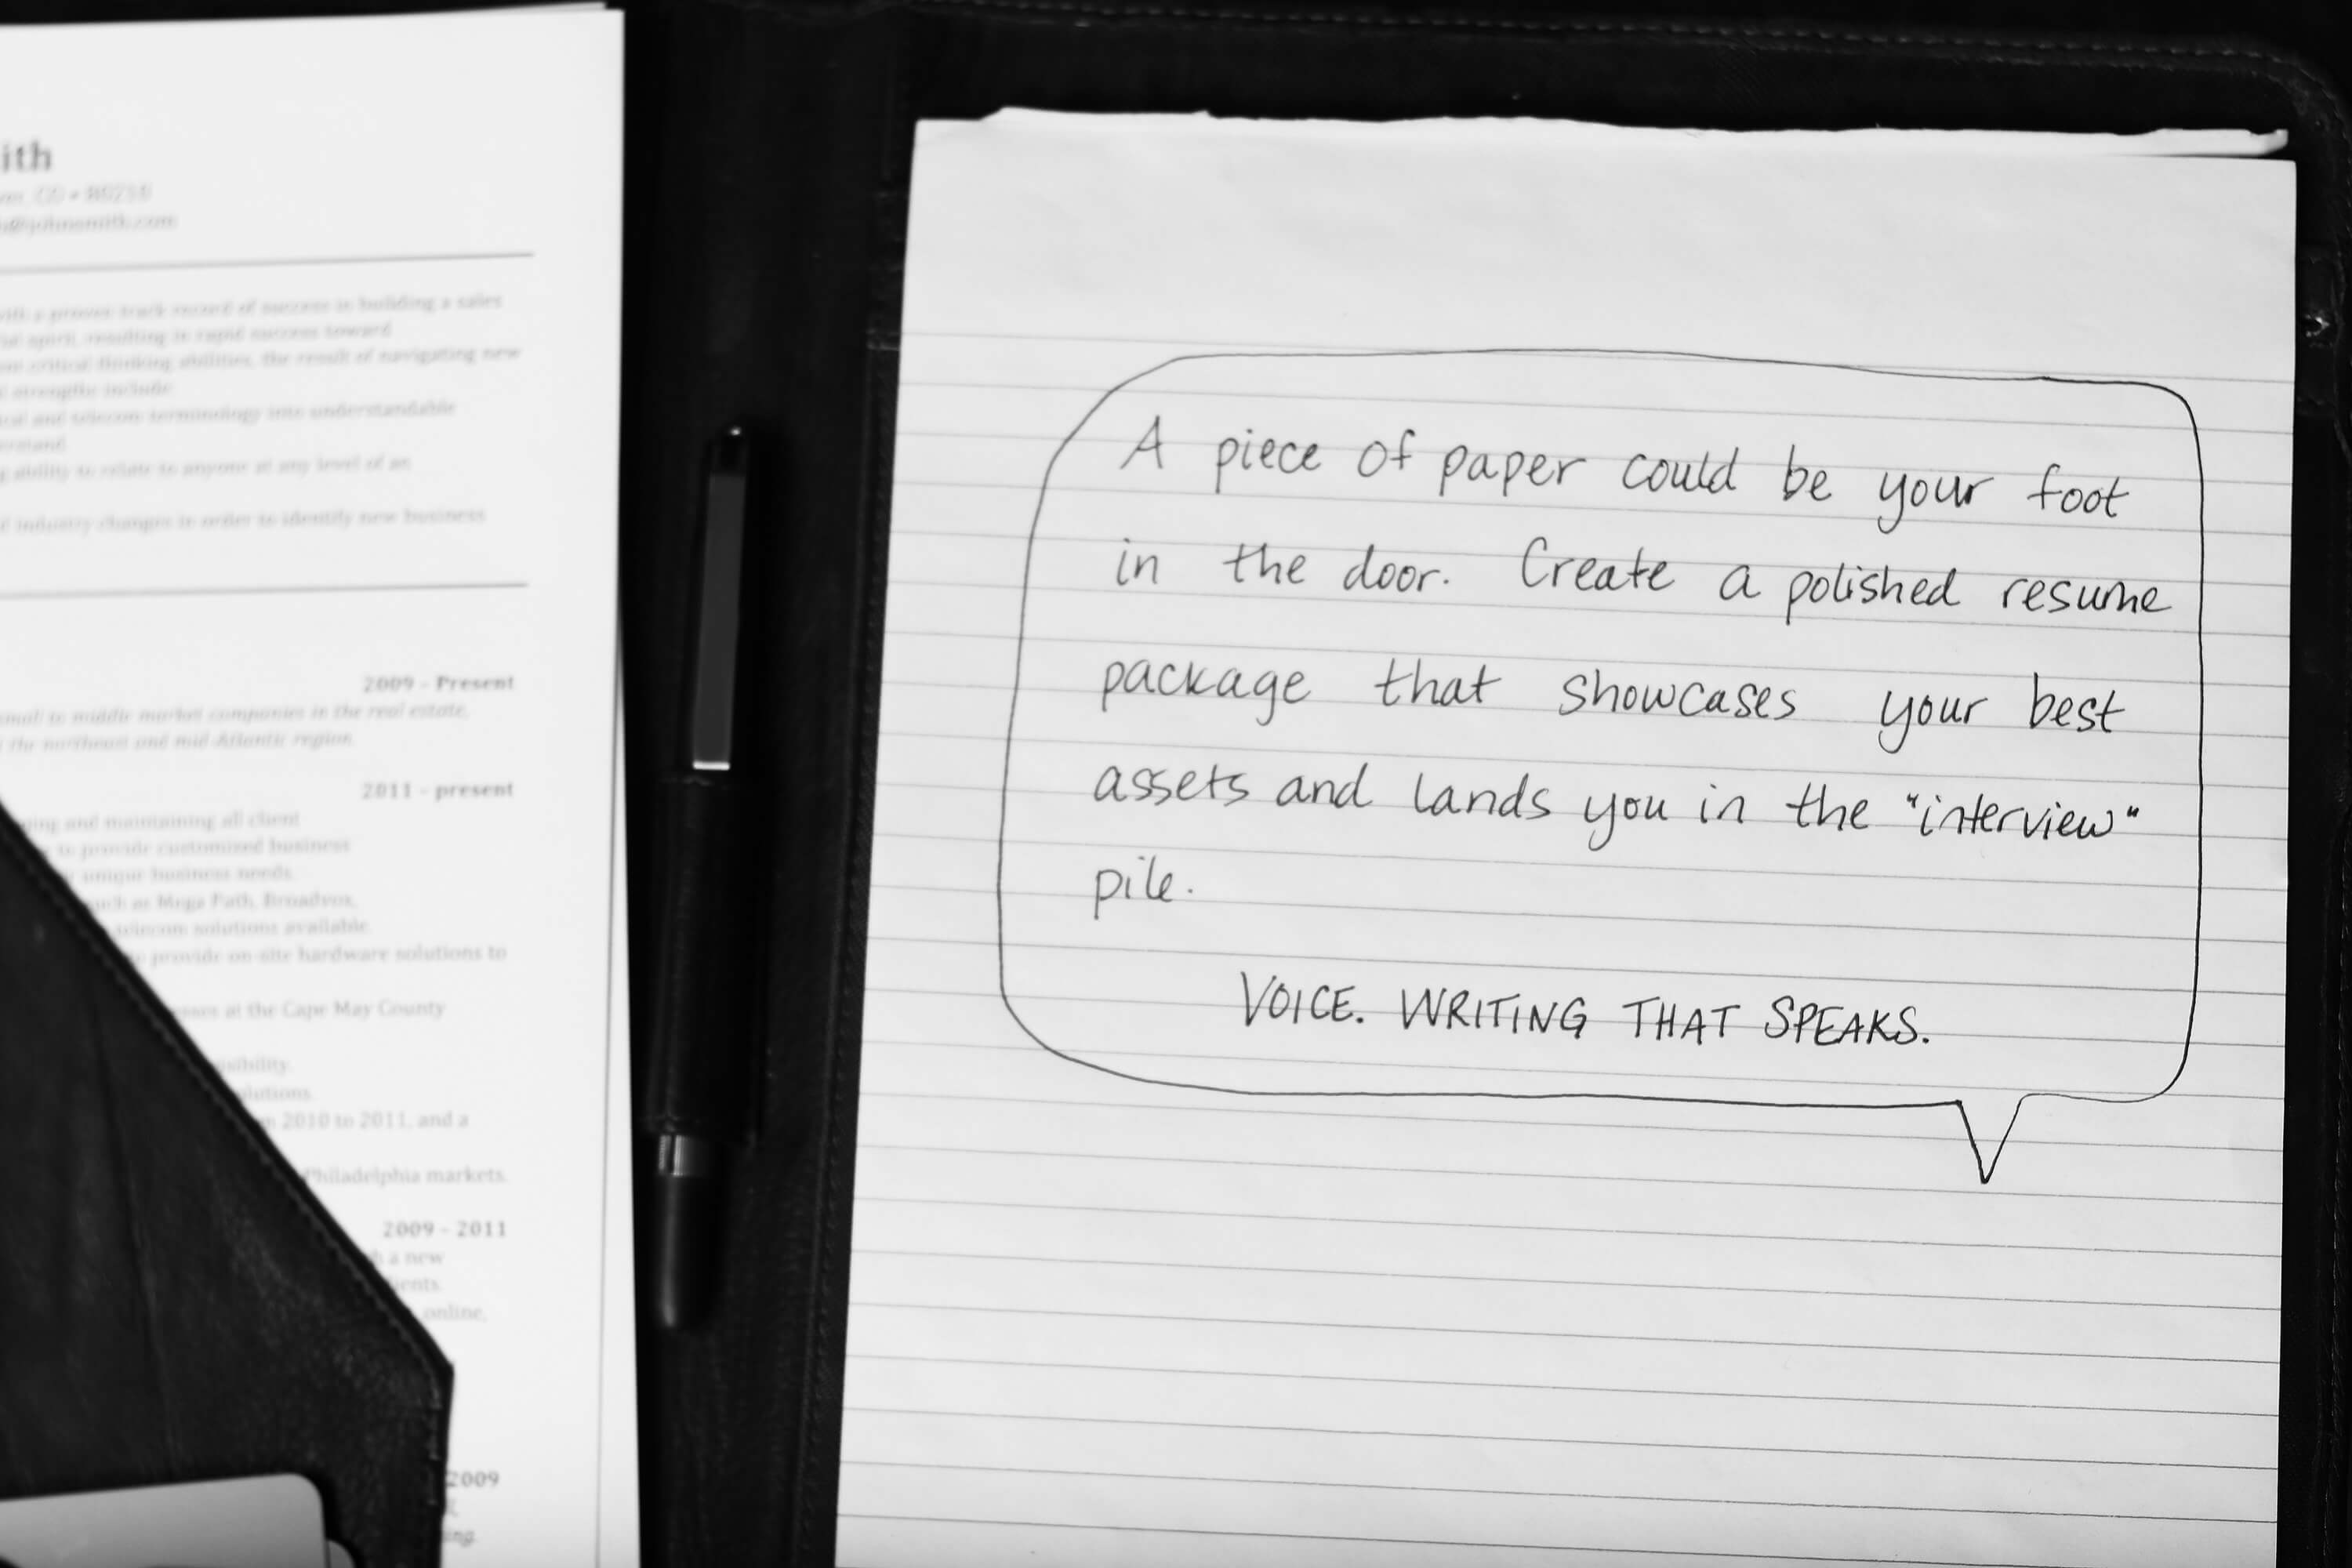 ith
@johnsmith.com
with a proven track record of success in building a sales
spirit, resulting in rapid success toward
critical thinking abilities, the result of navigating new
strengths include
and telecom terminology into understandable
ability to relate to anyone at any level of an
industry changes in order to identify new business
2009 - Present
small to middle market companies in the real estate,
the northeast and mid-Atlantic region.
2011 - present
ging and maintaining all client
to provide customized business
unique business needs.
such as Mega Path, Broadvox,
telecom solutions available.
provide on-site hardware solutions to
at the Cape May County
sibility.
olutions.
2010 to 2011, and a
Philadelphia markets.
2009 - 2011
a new
ients.
online,
2009
ing.
A piece of paper could be your foot
in the door. Create a polished resume
package that showcases your best
assets and lands you in the "interview"
pile.
VOICE. WRITING THAT SPEAKS.